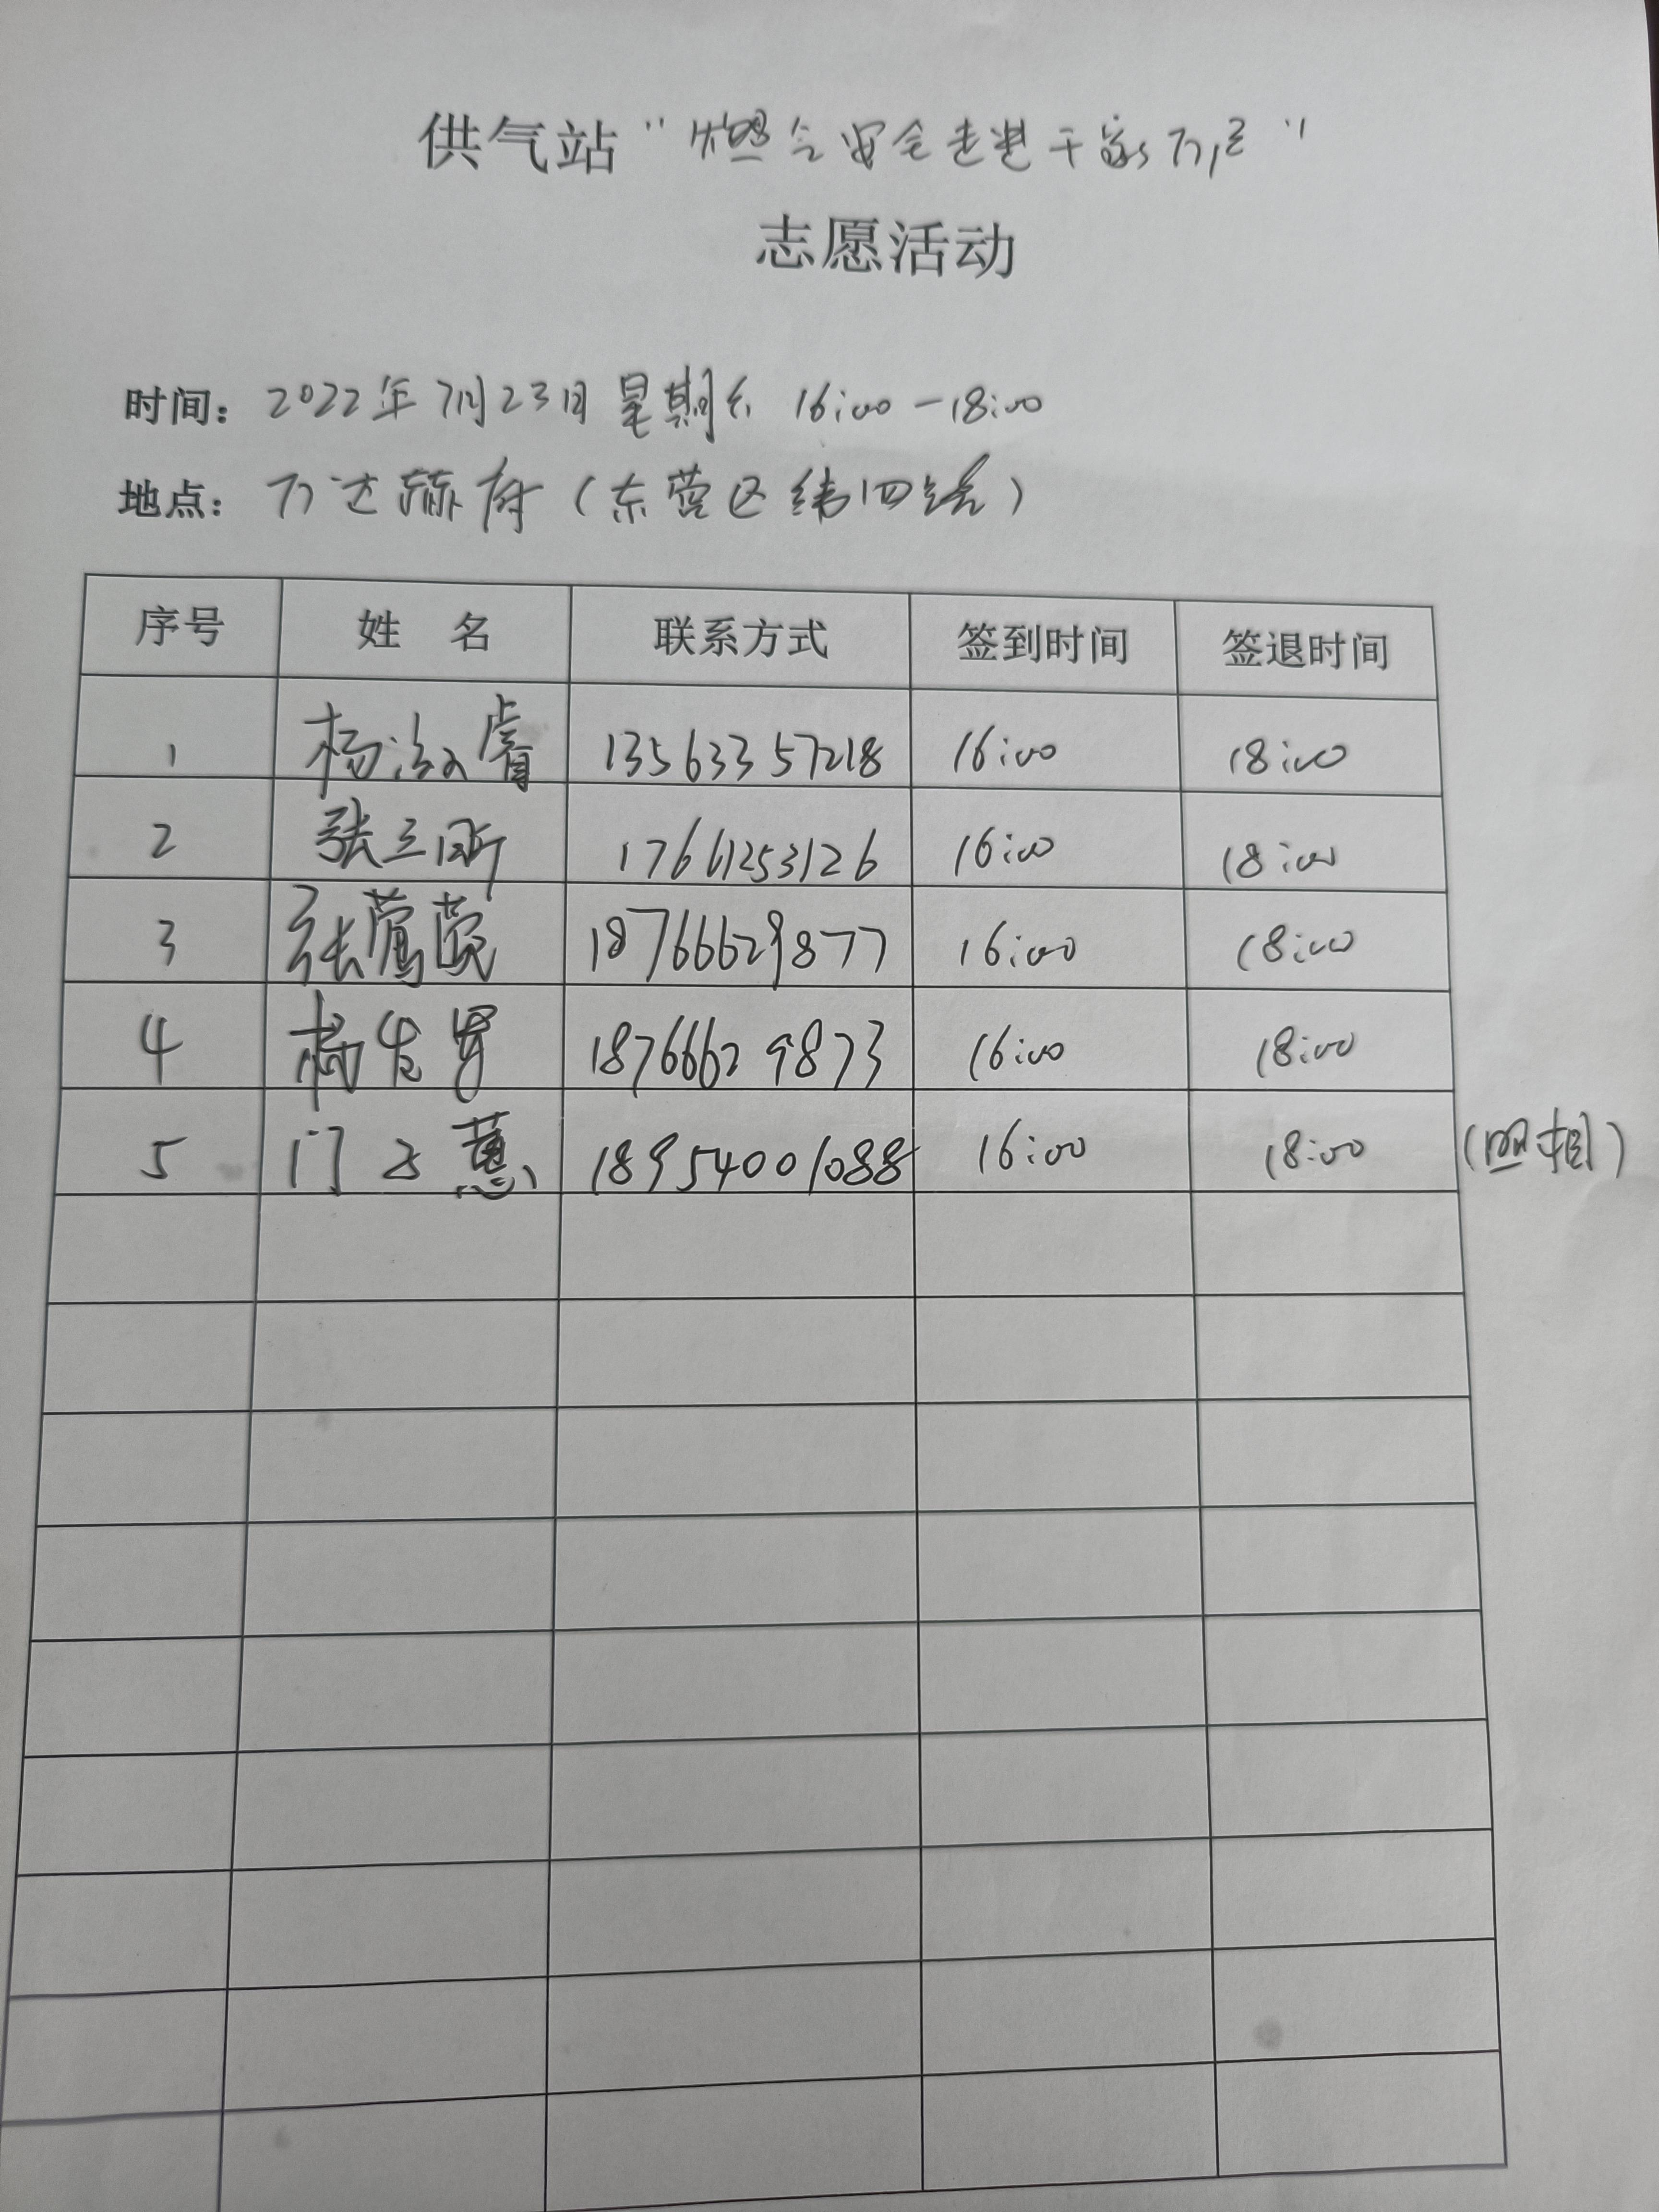 供气站"燃气安全走进千家万户"
志愿活动
时间：2022年7月23日 星期六 16:00-18:00
地点：万达赫府（东营区纬四路）
序号 姓名 联系方式 签到时间 签退时间
1 杨淑睿 13563357218 16:00 18:00
2 张立昕 17661253126 16:00 18:00
3 张莺莺 18766629877 16:00 18:00
4 杨发 18766629873 16:00 18:00
5 门云蕙 18954001088 16:00 18:00 （照相）